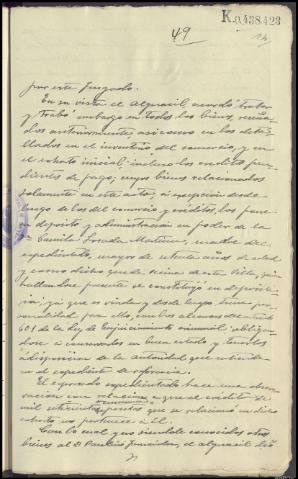 K.0,438,423
49
14
por este Juzgado.
En su vista el Alguacil, acordó trabar
y trabó embargo en todos los bienes, reseña
dos anteriormente, asi como en los deta
llados en el inventario del comercio, y en
el extracto inicial; incluso los creditos pen
dientes de pago, cuyos bienes relacionados
solamente en este acto, a excepción desde
luego de los del comercio y creditos, los puso
en deposito y administración en poder de la
Sª Camila Losada Martinez, madre del
expedientado, mayor de setenta años de edad
y como dichos que de vecina de esta Villa, que
hallandose presente se constituyó en deposita
ria, ya que es viuda y desde luego tiene perso
nalidad para ello, con los alcances del artículo
601 de la ley de Enjuiciamiento criminal, obligan
dose a conservarlos en buen estado y tenerlos
a disposición de la autoridad que entiende
en el expediente de referencia.
El expresado expedientado hace una obser
vación con relación a que el crédito de
mil setecientas pesetas que se relaciona en dicho
extracto no pertenece a él.
Con lo cual y no siendole conocidos otros
bienes al D. Paulino Fernandez, el alguacil dió